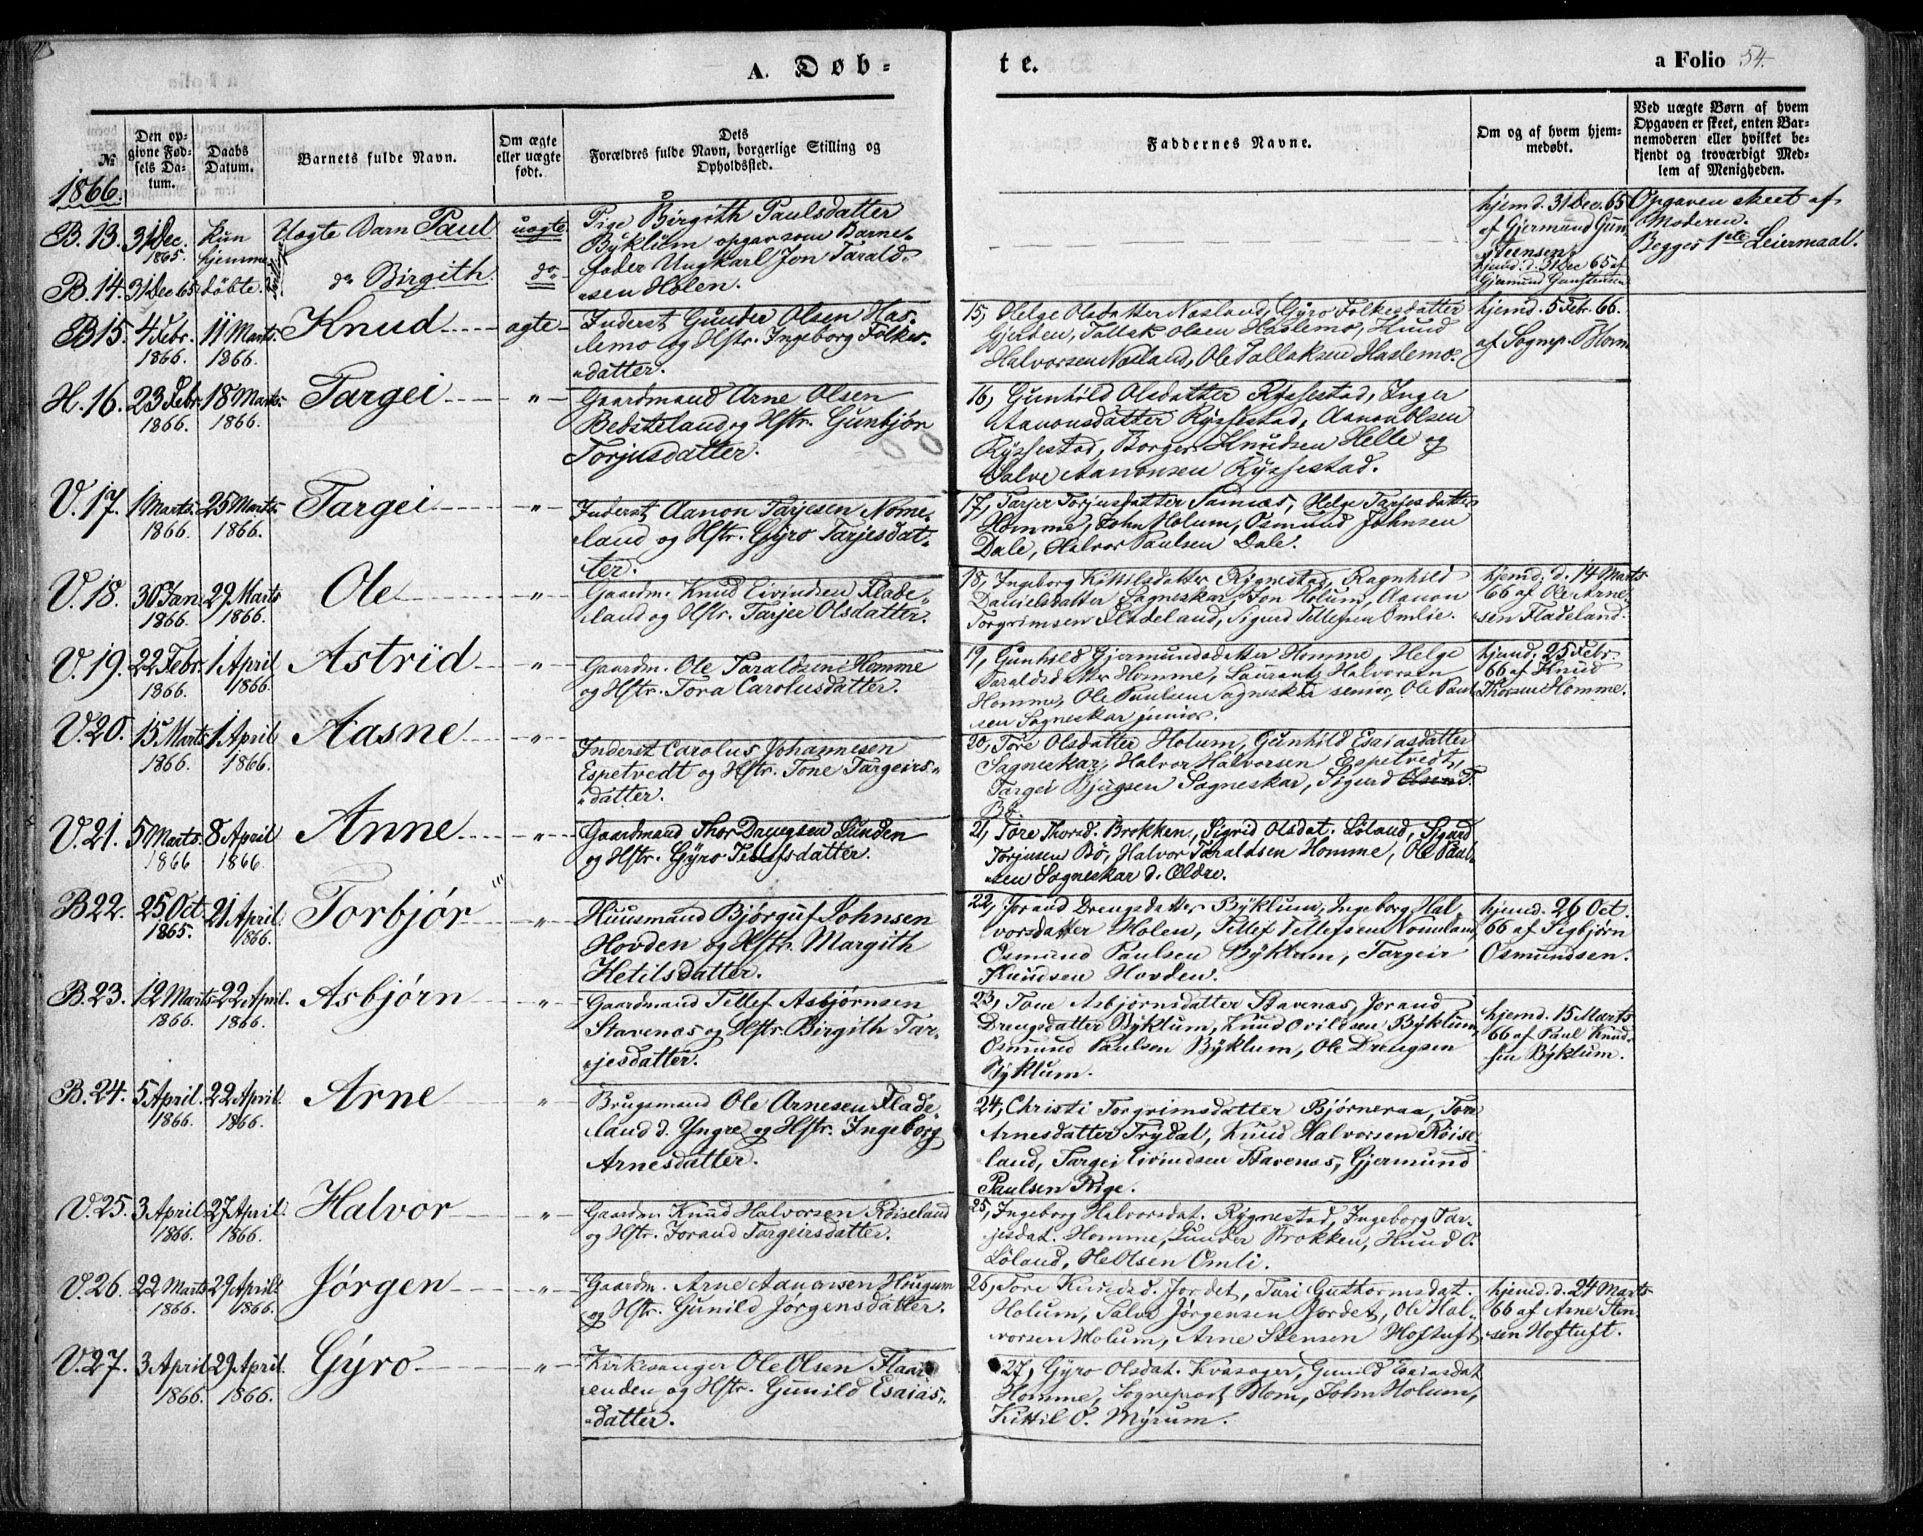 A. Døb-
te.
a Folio 54.
№
Den op-
givne Fød-
sels Da-
tum.
Daabs
Datum.
Barnets fulde Navn.
Om ægte
eller uægte
født.
Dets
Forældres fulde Navn, borgerlige Stilling og
Opholdssted.
Faddernes Navne.
Om og af hvem hjem-
medøbt.
Ved uægte Børn af hvem
Opgaven er skeet, enten Bar-
nemoderen eller hvilket be-
kjendt og troværdigt Med-
lem af Menigheden.
1866.
B. 13. 31 Dec. 1865. kun hjemme- Uægte Barn Paul uægte
Pige Birgith Paulsdatter
Byklum opgav som Barne-
fader Ungkarl Jon Tarald-
sen Holen.
hjemd. 31 Dec. 65
af Gjermund Gun-
steensen
Opgaven skeet af
Moderen.
Begges 1ste Leiermaal.
B. 14. 31 Dec 65 døbte. do Birgith. do
hjemd. d. 31 Dec 65 af
Gjermund Gunsteinsen
B 15. 4 Febr. 1866. 11 Marts. 1866. Knud ægte
Inderst Gunder Olsen Has-
lemo og Hstr. Ingeborg Folkes-
datter.
15, Helge Olsdatter Næsland, Gyro Folkesdatter
Gjerden, Tallak Olsen Haslemo, Knud
Halvorsen Næsland, Ole Tallaksen Haslemo.
hjemd. 5 Febr. 66.
af Sognep. Blom
H. 16. 23 Febr. 1866. 18 Marts. 1866. Targei "
Gaardmand Arne Olsen
Bedsteland og Hstr. Gunbjør
Torjusdatter.
16, Gunhild Olsdatter Rysstad, Inger
Aanonsdatter Rysstad, Aanon Olsen
Rysstad, Borger Knudsen Helle og
Salve Aanonsen Rysstad.
V. 17. 1 Marts. 1866. 25 Marts. 1866. Targei "
Inderst Aanon Tarjesen Nome-
land og Hstr. Gyro Tarjesdat-
ter.
17, Tarjer Torjusdatter Sannæs, Helge Tarjesdatter
Homme, John Holum, Osmund Johnsen
Dale, Halvor Paulsen Dale.
V. 18. 30 Jan 1866. 29 Marts 1866. Ole "
Gaardm. Knud Eivindsen Flade-
land og Hstr. Tarjer Olsdatter.
18, Ingeborg Kittilsdatter Rygnestad, Ragnhild
Danielsdatter Sagneskar, Jon Holum, Aanon
Torgrimsen Fladeland, Sigurd Tellefsen Omlie.
hjemd. d. 14 Marts
66 af Ole Arne-
sen Fladeland.
V. 19. 22 Febr. 1866. 1 April 1866. Astrid "
Gaardm. Ole Taraldsen Homme
og Hstr. Tora Carolusdatter.
19, Gunhild Gjermundsdatter Homme, Helge
Taraldsdatter Homme, Laurants Halvorsen
Homme, Ole Paulsen Sagneskar senior, Ole Paul-
sen Sagneskar junior.
hjemd. 25 Febr.
66 af Knud
Thorsen Homme.
V. 20. 15 Marts 1866. 1 April 1866. Aasne "
Inderst Carolus Johannesen
Espetvedt og Hstr. Tone Targeirs-
datter.
20, Tore Olsdatter Holum, Gunhild Esaiasdatter
Sagneskar, Halvor Halvorsen Espetvedt,
Targei Bjugsen Sagneskar, Sigurd Olsen T.
Bö.
V. 21. 5 Marts. 1866 8 April 1866. Anne "
Gaardmand Thor Drengsen Lunden
og Hstr. Gyro Tellefsdatter.
21, Tore Thorsd. Brokken, Sigrid Olsdat. Løland, Sigurd
Torjusen Bö, Halvor Taraldsen Homme, Ole Paul-
sen Sagneskar d. Ældre.
B 22. 25 Oct 1865. 21 April. 1866. Torbjør "
Huusmand Bjørguf Johnsen
Hovden og Hstr. Margith
Ketilsdatter.
22, Jorand Drengsdatter Byklum, Ingeborg Hal-
vorsdatter Holen, Tellef Tellefsen Nomeland,
Osmund Paulsen Byklum, Targeir
Knudsen Hovden.
hjemd. 26 Oct.
66 af Sigbjørn
Osmundsen.
B. 23. 12 Marts 1866. 22 April. 1866. Asbjørn "
Gaardmand Tellef Asbjørnsen
Stavenæs og Hstr. Birgith Tar-
jesdatter.
23, Tone Asbjørnsdatter Stavenæs, Jorand
Drengsdatter Byklum, Knud Ovildsen Byklum,
Osmund Paulsen Byklum, Ole Drengsen
Byklum.
hjemd. 15 Marts
66 af Paul Knud-
sen Byklum.
B. 24. 5 April. 1866. 22 April. 1866. Arne "
Brugsmand Ole Arnesen Flade-
land d. Yngre og Hstr. Ingeborg
Arnesdatter.
24, Christi Torgrimsdatter Bjørneraa, Tone
Arnesdatter Trydal, Knud Halvorsen Røise-
land, Targei Eivindsen Stavenæs, Gjermund
Paulsen Rige.
V. 25. 3 April. 1866. 27 April. 1866. Halvor "
Gaardm. Knud Halvorsen Røiseland
og Hstr. Jorand Targeirsdatter.
25, Ingeborg Halvorsdat. Rygnestad, Ingeborg Tar-
jesdat. Homme, Gunder Brokken, Knud O.
Løland, H Olsen Omli.
V. 26. 22 Marts 1866. 29 April 1866. Jørgen "
Gaardm. Arne Aanonsen Haugum
og Hstr. Gunild Jørgensdatter.
26, Tore Knudsd. Jordet, Tari Guttormsdat.
Holum, Salve Jørgensen Jordet, Ole Hal-
vorsen Holum, Arne Stensen Hoftuft
hjemd. d. 24 Marts
66 af Arne Sten-
sen Hoftuft.
V. 27. 3 April 1866. 29 April. 1866. Gyro "
Kirkesanger Ole Olsen Flaar-
renden og Hstr. Gunild Esaias-
datter.
27, Gyro Olsdat. Kvasager, Gunild Esaiasdat
Homme, Sogneprest Blom, John Holum,
Kittil O. Myrum.